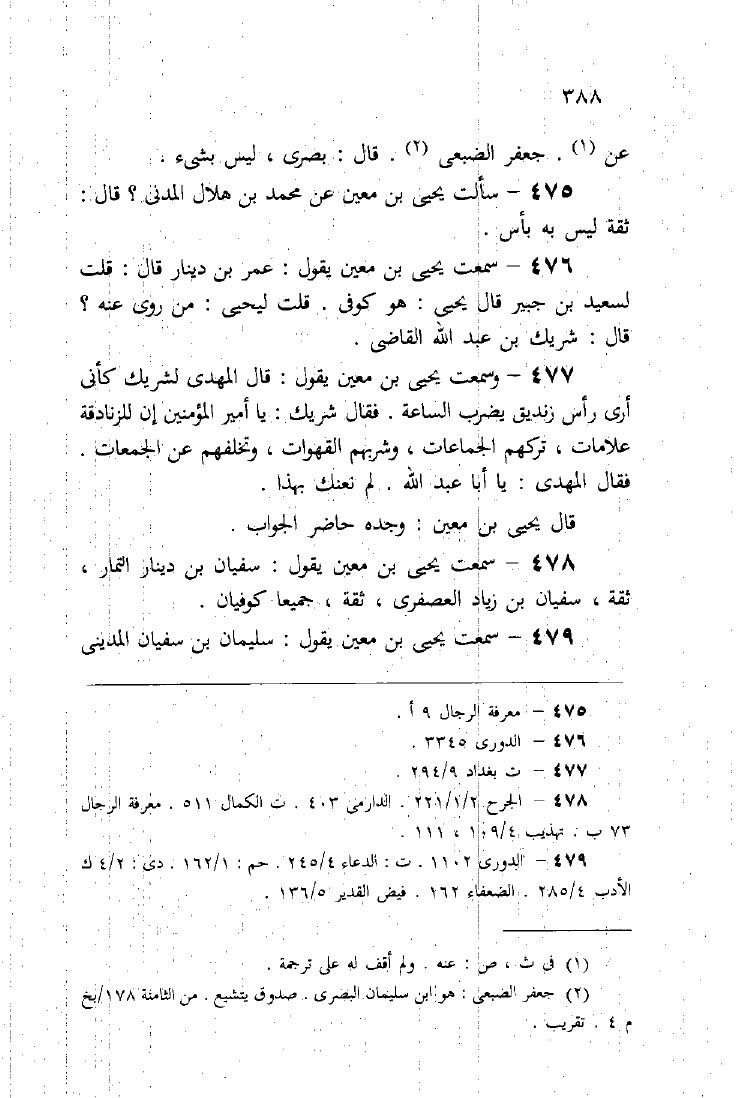 ٣٨٨
عن (١) . جعفر الضبعى (٢) . قال : بصرى ، ليس بشىء .
٤٧٥ – سألت يحيى بن معين عن محمد بن هلال المدنى ؟ قال :
ثقة ليس به بأس .
٤٧٦ – سمعت يحيى بن معين يقول : عمر بن دينار قال : قلت
لسعيد بن جبير قال يحيى : هو كوفى . قلت ليحيى : من روى عنه ؟
قال : شريك بن عبد الله القاضى .
٤٧٧ – وسمعت يحيى بن معين يقول : قال المهدى لشريك كأنى
أرى رأس زنديق يضرب الساعة . فقال شريك : يا أمير المؤمنين إن للزنادقة
علامات ، تركهم الجماعات ، وشربهم القهوات ، وتخلفهم عن الجمعات .
فقال المهدى : يا أبا عبد الله . لم نعنك بهذا .
قال يحيى بن معين : وجده حاضر الجواب .
٤٧٨ – سمعت يحيى بن معين يقول : سفيان بن دينار التمار ،
ثقة ، سفيان بن زياد العصفرى ، ثقة ، جميعا كوفيان .
٤٧٩ – سمعت يحيى بن معين يقول : سليمان بن سفيان المدينى
٤٧٥ – معرفة الرجال ٩ أ .
٤٧٦ – الدورى ٣٣٤٥ .
٤٧٧ – ت بغداد ٢٩٤/٩ .
٤٧٨ – الجرح ٢٢١/١/٢ . الدارمى ٤٠٣ . ت الكمال ٥١١ . معرفة الرجال
٧٣ ب . تهذيب ١٠٩/٤ ، ١١١ .
٤٧٩ – الدورى ١١٠٢ . ت : الدعاء ٢٤٥/٤ . حم : ١٦٢/١ . دى : ٤/٢ ك
الأدب ٢٨٥/٤ . الضعفاء ١٦٢ . فيض القدير ١٣٦/٥ .
(١) فى ث ، ص : عنه . ولم أقف له على ترجمة .
(٢) جعفر الضبعى : هو ابن سليمان البصرى . صدوق يتشيع . من الثامنة ١٧٨/بخ
م ٤ . تقريب .